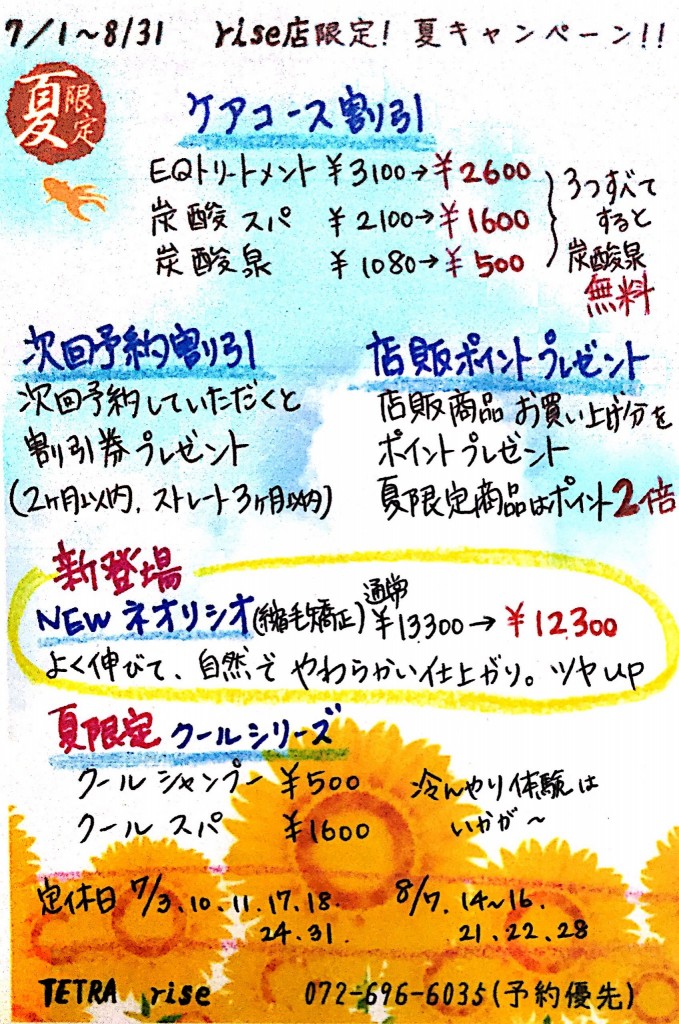 7/1～8/31 rise店限定! 夏キャンペーン!!
夏限定
ケアコース割引
EQトリートメント ¥3100→¥2600
炭酸スパ ¥2100→¥1600
炭酸泉 ¥1080→¥500
3つすべて
すると
炭酸泉
無料
次回予約割り引
次回予約していただくと
割引券プレゼント
(2ヶ月以内、ストレート3ヶ月以内)
店販ポイントプレゼント
店販商品お買い上げ分を
ポイントプレゼント
夏限定商品はポイント2倍
新登場
NEW ネオリシオ(縮毛矯正) 通常¥13300→¥12300
よく伸びて、自然でやわらかい仕上がり。ツヤup
夏限定クールシリーズ
クールシャンプー ¥500
クールスパ ¥1600
冷んやり体験は
いかが～
定休日 7/3.10.11.17.18.
24.31.
8/7.14～16.
21.22.28
TETRA rise 072-696-6035(予約優先)